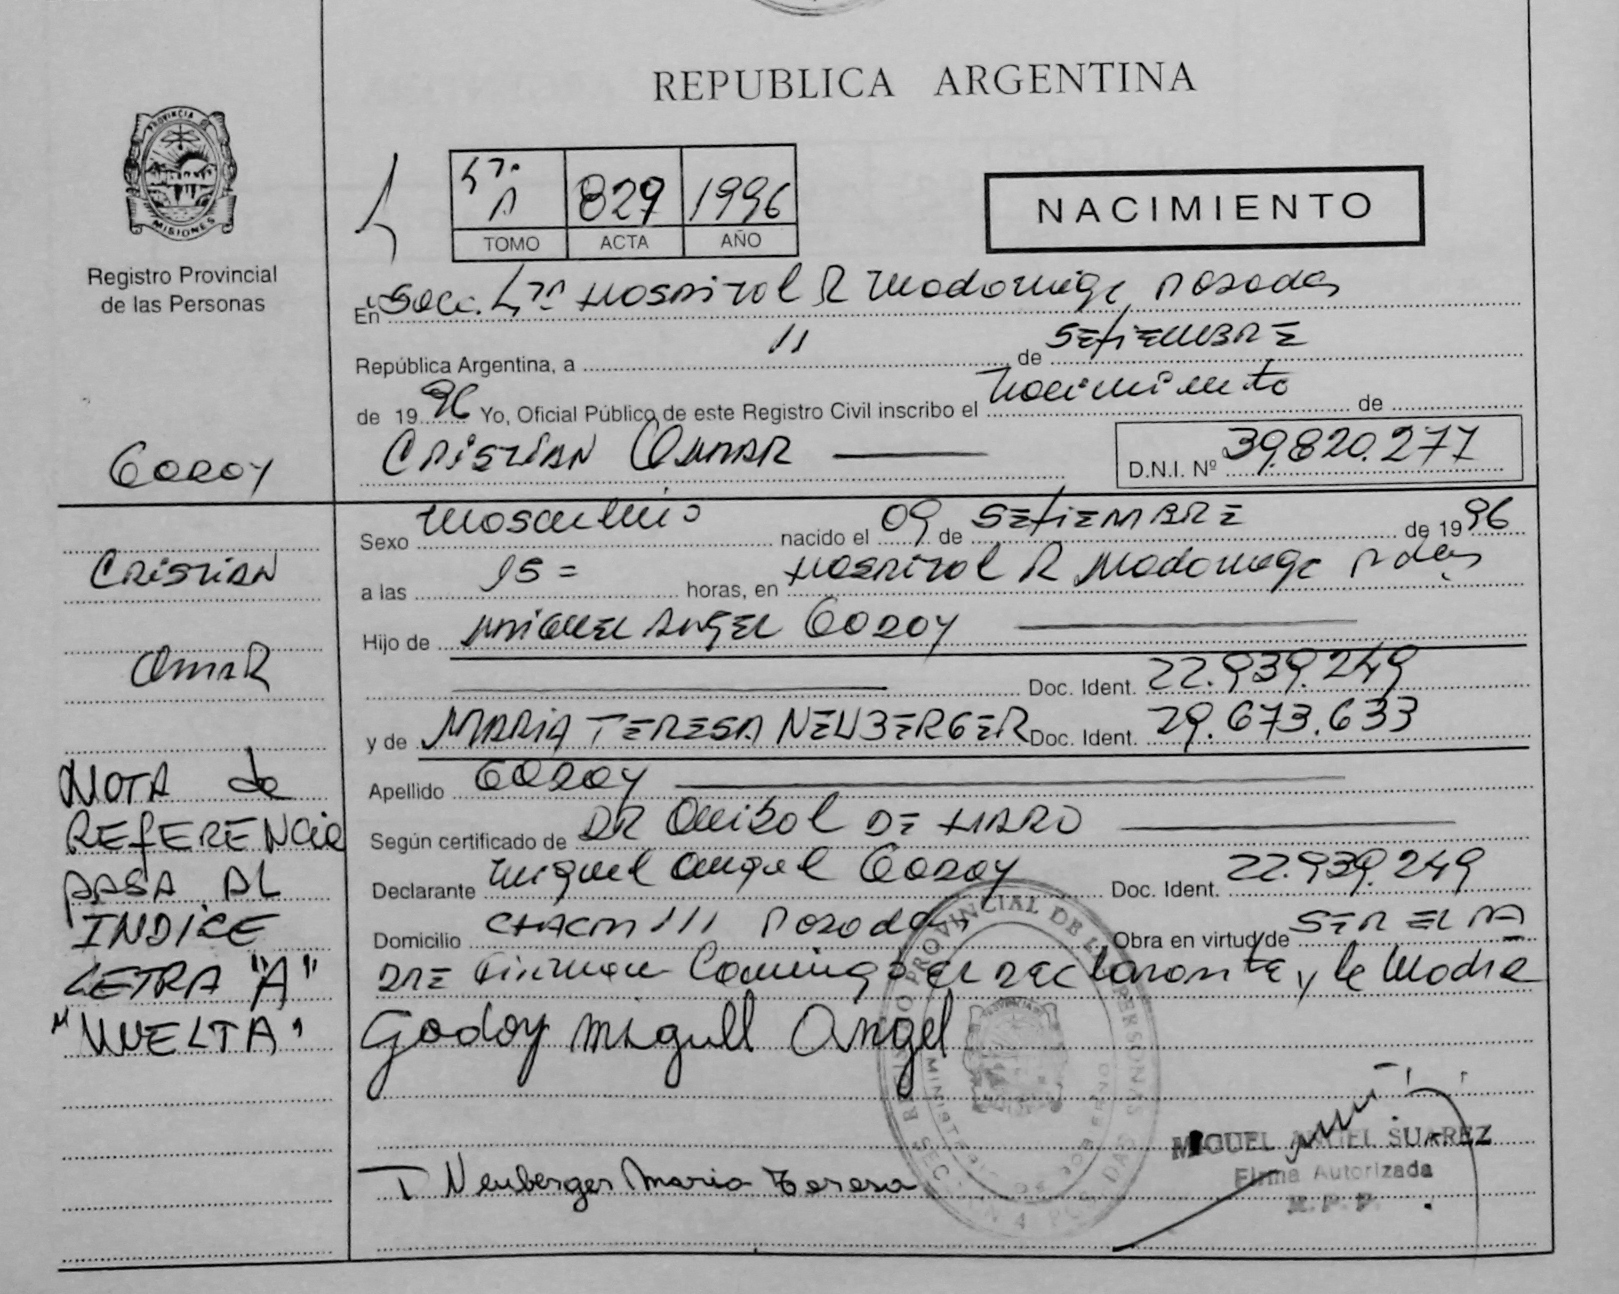 REPUBLICA ARGENTINA
PROVINCIA
MISIONES
Registro Provincial
de las Personas
4ta A 829 1996
TOMO ACTA AÑO
NACIMIENTO
En Secc. 4ta Hospital R Madariaga Posadas
República Argentina, a 11 de SETIEMBRE
de 1996 Yo, Oficial Público de este Registro Civil inscribo el Nacimiento de
GODOY
CRISTIAN OMAR
D.N.I. Nº 39.820.277
CRISTIAN
OMAR
Sexo Masculino nacido el 09 de SETIEMBRE de 1996
a las 15 = horas, en Hospital R Madariaga Pdas
Hijo de MIGUEL ANGEL GODOY
Doc. Ident. 22.939.249
y de MARIA TERESA NEUBERGER Doc. Ident. 29.673.633
Apellido GODOY
Según certificado de DR DE HARO
Declarante Miguel Angel Godoy Doc. Ident. 22.939.249
Domicilio CHACRA 111 Posadas Obra en virtud de SER EL PA
DRE Firman Conmigo el DEClarante y la Madre
NOTA de
REFERENCIA
PASA AL
INDICE
LETRA "A"
"VUELTA"
Godoy Miguel Angel
Neuberger Maria Teresa
REGISTRO PROVINCIAL DE LAS PERSONAS
SECCION 4 POSADAS
MIGUEL ANGEL SUAREZ
Firma Autorizada
R. P. P.